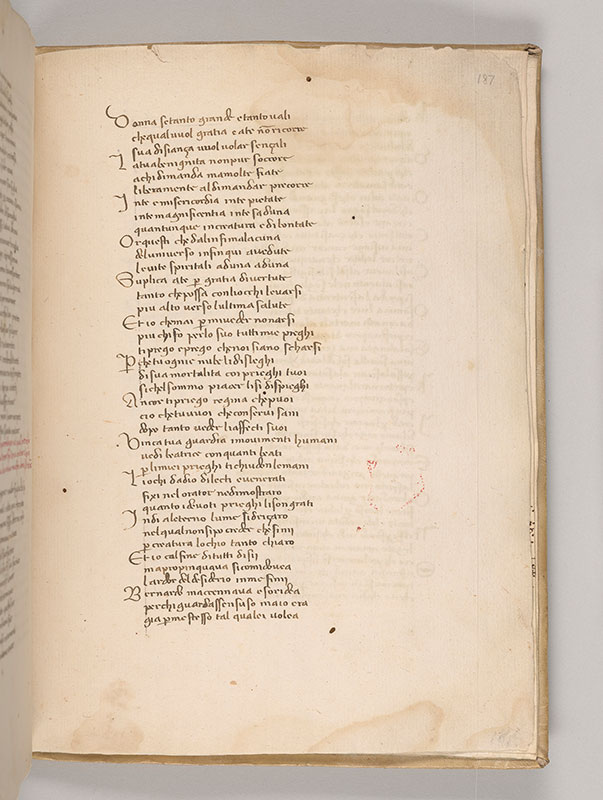 187
Donna setanto grande etanto vali
che qual vuol gratia e ate nō ricorre
sua disiança vuol volar sençali
La tua benignita non pur socorre
achi dimanda ma molte fiate
liberamente al dimandar precorre
In te emisericordia in te pietate
in te magnificentia in te saduna
quantunque increatura e di bontate
Or questi che dalinfima lacuna
deluniverso insin qui avedute
le vite spiritali aduna aduna
Suplica ate p gratia di vertute
tanto che possa con liocchi levarsi
piu alto verso lultima salute
Et io che mai p mi veder non arsi
piu chi fo per lo suo tutti mie preghi
ti prego e prego che noi siano scharsi
Pche tu ogni nube li disleghi
di sua mortalita co i prieghi tuoi
si chel sommo piacer lisi dispieghi
Ancor ti priego regina che puoi
cio che tu vuoi che conservi sani
dopo tanto veder li affecti suoi
Vinca tua guardia i movimenti humani
vedi beatrice con quanti beati
p li miei prieghi ti chiudon lemani
Liochi dadio dilecti e venerati
fixi nel orator ne dimostraro
quanto i devoti prieghi li son grati
Indi aleterno lume si driçaro
nel qual non si po creder che sinii
p creatura lochio tanto chiaro
Et io cal fine di tutti disii
mapropinquava si com i dovea
lardor del desiderio in me finii
Bernardo maccennava e soridea
perchi guardasse in suso ma io era
gia p me stesso tal qualei volea